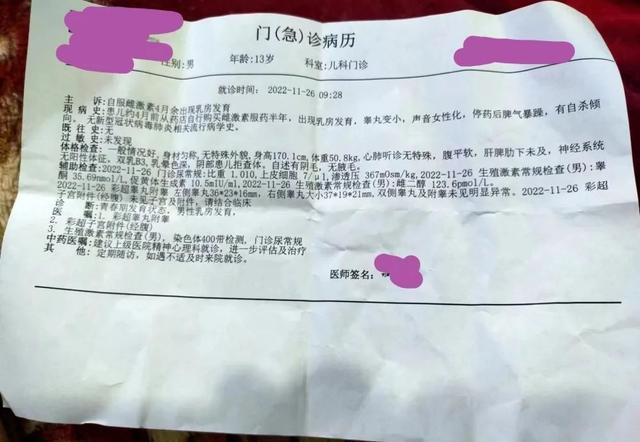 门(急)诊病历
性别:男 年龄:13岁 科室:儿科门诊
就诊时间: 2022-11-26 09:28
主 诉:自服雌激素4月余出现乳房发育
现 病 史:患儿约4月前从药店自行购买雌激素服药半年,出现乳房发育,睾丸变小,声音女性化,停药后脾气暴躁,有自杀倾
向。无新型冠状病毒肺炎相关流行病学史。
既 往 史:无
过 敏 史:未发现
体格检查:一般情况好,身材匀称,无特殊外貌,身高170.1cm,体重50.8kg,心肺听诊无特殊,腹平软,肝脾肋下未及,神经系统
无阳性体征,双乳B3,乳晕色深,阴部患儿拒查体,自述有阴毛,无腋毛。
辅助检查:2022-11-26 门诊尿常规:比重 1.010,上皮细胞 7/μl,渗透压 367mOsm/kg,2022-11-26 生殖激素常规检查(男):睾
酮 35.69nmol/L,促黄体生成素 10.5mIU/ml,2022-11-26 生殖激素常规检查(男):雌二醇 123.6pmol/L。
2022-11-26 彩超睾丸附睾 左侧睾丸36*23*16mm,右侧睾丸大小37*19*21mm,双侧睾丸及附睾未见明显异常。2022-11-26 彩超
子宫附件(经腹) 未见子宫及附件,请结合临床
诊 断:青春早发育状态,男性乳房发育,
医 嘱:1. 彩超睾丸附睾
2. 彩超子宫附件(经腹)
3. 生殖激素常规检查(男),染色体400带检测,门诊尿常规
中药医嘱:建议上级医院精神心理科就诊,进一步评估及治疗
其 他:定期随访,如遇不适及时来院就诊。
医师签名: